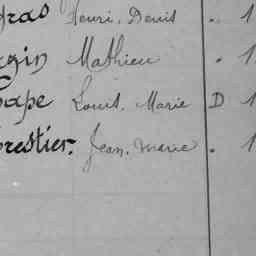 gras Henri. Denis " 1
rgin Mathieu " 1
Pape Louis. Marie D 1
orestier. Jean. Marie " 1